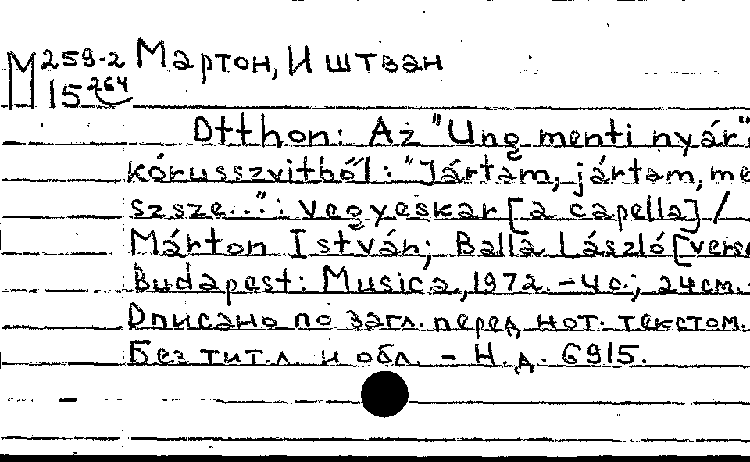 М 259-2 Мартон, Иштван
15 264
Otthon: Az "Ung menti nyár"
kórusszvitből: "Jártam, jártam, me
szsze...": Vegyeskar [a capella] /
Márton István; Balla László [vers
Budapest: Musica, 1972. - 4 с.; 24 см. -
Описано по загл. перед нот. текстом.
Без тит. л. и обл. - Н. д. 6915.